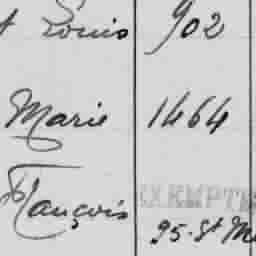 St Louis 902
Marie 1464
François EXEMPTE
95 St